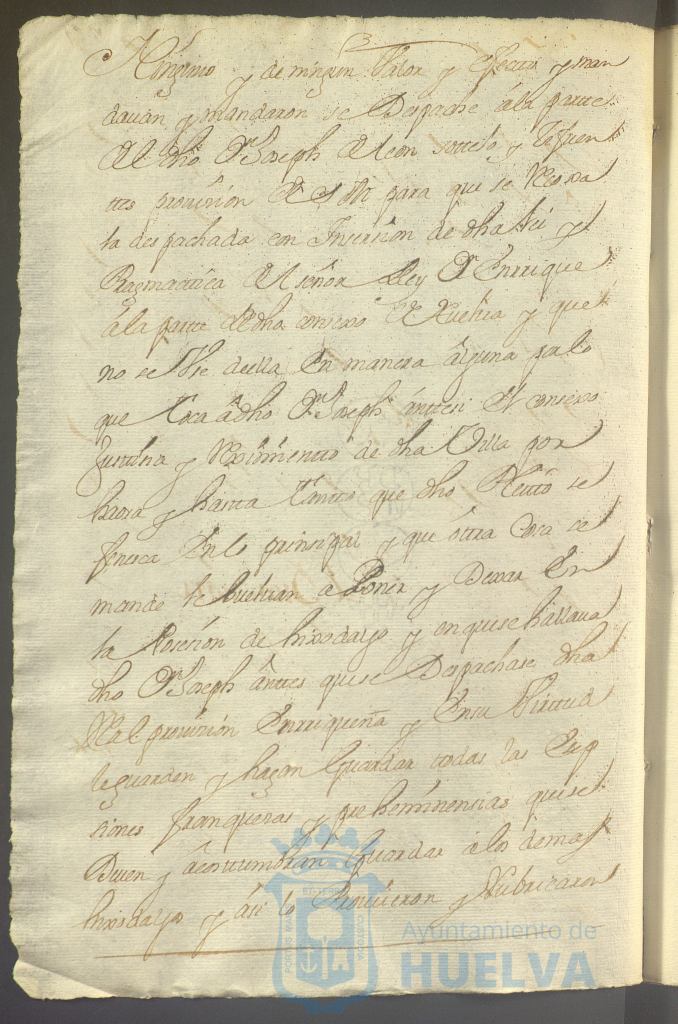 Ninguno y de ningun Valor y efecto y man
dauan y mandaron se Despache â la parte
del dho Dn Joseph de Leon sotelo y Zifuen
tes prouission de S M para que se Recoxa
la despachada con Insersion de dha lei y
Pragmactica del señor Rey Dn Enrrique
â la parte de dho consexo de Huelva y que
no se Vse de ella En manera alguna pa lo
que toca â dho Dn Joseph ânttes el consexo
Justicia y Reximientto de dha Villa por
haora y hasta tantto que dho Pleitto se
fenesca En lo prinsipal y que ôttra Cosa se
mande le buelvan a Poner y Dexar En
la Posesion de hixodalgo y en que se hallaua
dho Dn Joseph ânttes que se Despachase dha
Real prouision Enrriqueña y En su Virtud
le guarden y hagan Guardar todas las Exsep
siones franquezas y preheminensias que se
Deuen y âcostumbran Guardar â los demas
hixosdalgo y âsi lo Proueieron y Rubricaron
Ayuntamiento de
HUELVA